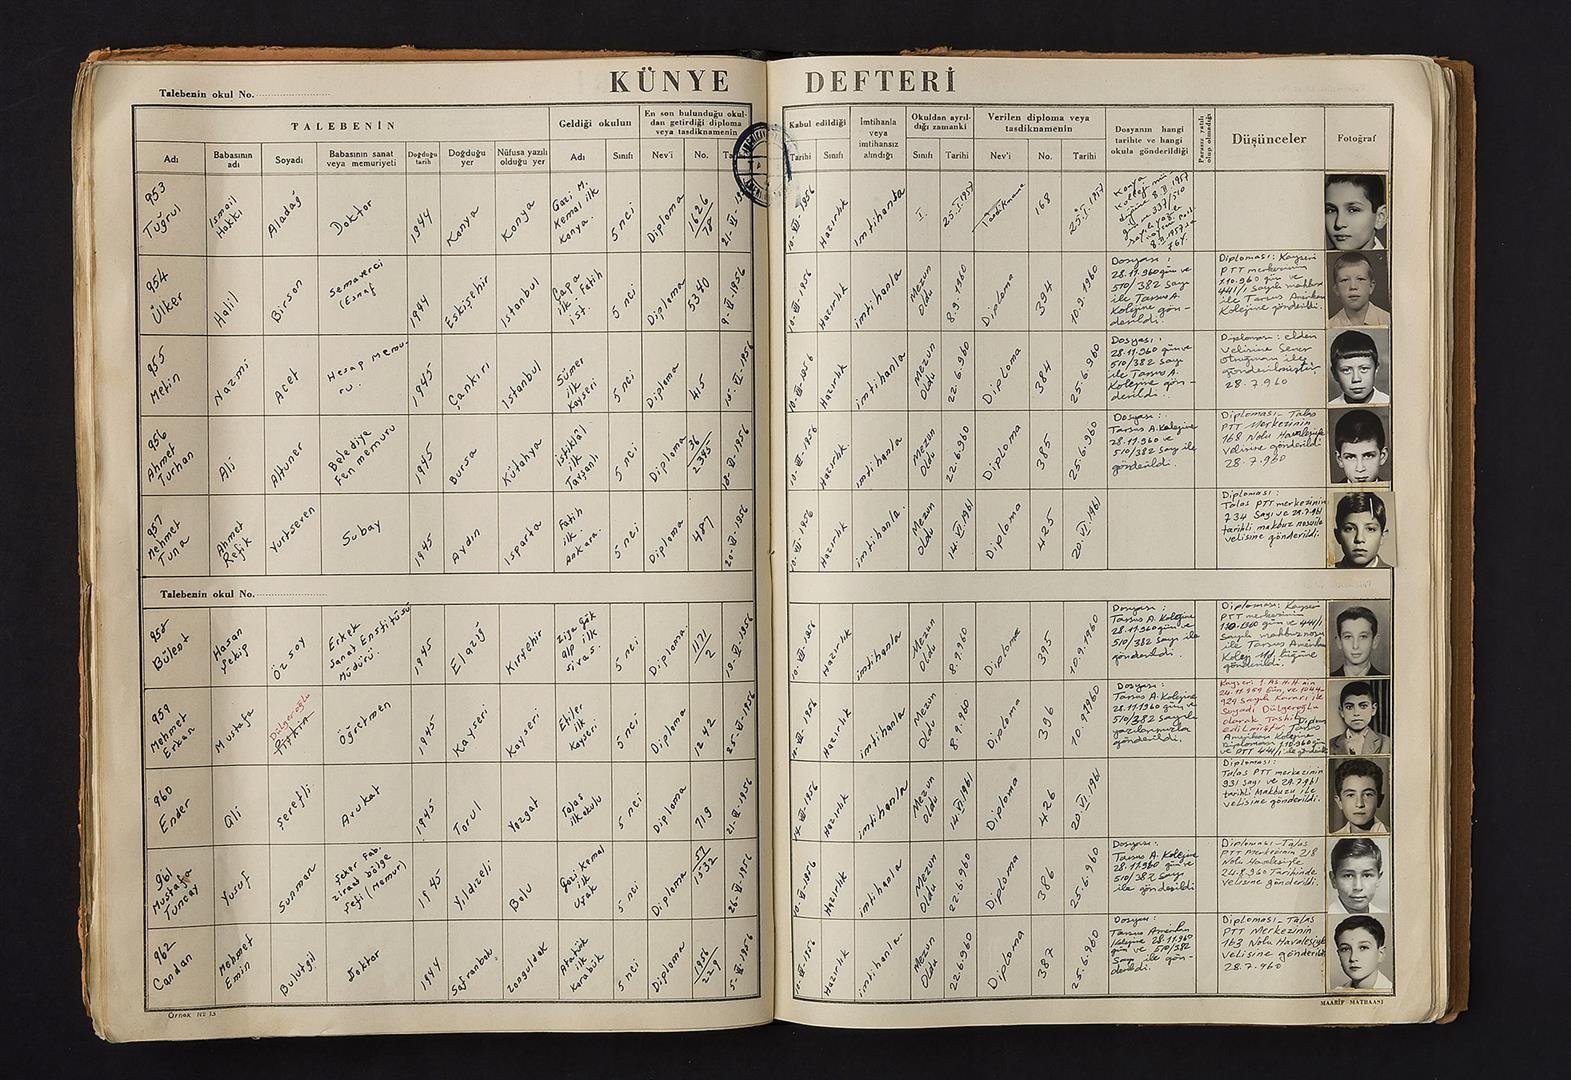 KÜNYE DEFTERİ
Talebenin okul No.
TALEBENİN
Geldiği okulun
En son bulunduğu okul-
dan getirdiği diploma
veya tasdiknamenin
Kabul edildiği
İmtihanla
veya
imtihansız
alındığı
Okuldan ayrıl-
dığı zamanki
Verilen diploma veya
tasdiknamenin
Dosyanın hangi
tarihte ve hangi
okula gönderildiği
Parasız yatılı
olup olmadığı
Düşünceler
Fotoğraf
Adı
Babasının
adı
Soyadı
Babasının sanat
veya memuriyeti
Doğduğu
tarih
Doğduğu
yer
Nüfusa yazılı
olduğu yer
Adı
Sınıfı
Nev'i
No.
Tarihi
Sınıfı
Sınıfı
Tarihi
Nev'i
No.
Tarihi
953
Tuğrul
İsmail
Hakkı
Aladağ
Doktor
1944
Konya
Konya
Gazi M.
Kemal ilk
Konya.
5 nci
Diploma
1626
78
21-VI-1956
Hazırlık
imtihanla
I.
25.I.1957
Tasdikname
168
25.I.1957
954
Ülker
Halil
Birson
Semaverci
(Esnaf
1944
Eskişehir
İstanbul
Çapa
ilk. Fatih
ist.
5 nci
Diploma
5340
9-VI-1956
Hazırlık
imtihanla
Mezun
Oldu
8.9.1960
Diploma
394
10.9.1960
Dosyası:
28.11.960 gün ve
510/382 Sayı
ile Tarsus A.
Kolejine gön-
derildi.
Diploması: Kayseri
PTT merkezinin
1.10.960 gün ve
441/1 Sayılı makbuz
ile Tarsus Amerikan
Kolejine gönderildi.
955
Metin
Nazmi
Acet
Hesap Memu-
ru.
1945
Çankırı
İstanbul
Sümer
ilk
Kayseri
5 nci
Diploma
415
15-VI-1956
Hazırlık
imtihanla
Mezun
Oldu
22.6.960
Diploma
384
25.6.960
Dosyası:
28.11.960 gün ve
510/382 Sayı
ile Tarsus A.
Kolejine gön-
derildi.
Diploması: elden
velisine Şener
gönderilmiştir
28.7.960
956
Ahmet
Turhan
Ali
Altuner
Belediye
Fen memuru
1945
Bursa
Kütahya
istiklal
ilk
Tavşanlı
5 nci
Diploma
36
2345
18-VI-1956
Hazırlık
imtihanla
Mezun
Oldu
22.6.960
Diploma
385
25-6-960
Dosyası:
Tarsus A. Kolejine
28.11.960 ve
510/382 Sayı ile
gönderildi.
Diploması- Talas
PTT Merkezinin
168 Nolu Havalesiyle
velisine gönderildi
28.7.960
957
Mehmet
Tuna
Ahmet
Refik
Yurtseren
Subay
1945
Aydın
Isparta
Fatih
ilk.
Ankara.
5 nci
Diploma
487
20-VI-1956
Hazırlık
imtihanla.
Mezun
Oldu
14.VI.1961
Diploma
425
20.VI.1961
Diploması:
Talas PTT merkezinin
734 Sayı ve 29.7.961
tarihli makbuz nosu ile
velisine gönderildi.
Talebenin okul No.
958
Bülent
Hasan
Şekip
Özsoy
Erkek
Sanat Enstitüsü
Müdürü.
1945
Elazığ
Kırşehir
Ziya Gök
alp ilk
Sivas.
5 nci
Diploma.
1171
2
19-VI-1956
Hazırlık
imtihanla
Mezun
Oldu
8.9.960
Diploma
395
10.9.1960
Dosyası:
Tarsus A. Kolejine
28.11.960 gün ve
510/382 Sayı ile
gönderildi.
Diploması: Kayseri
PTT merkezinin
1.10.1960 gün ve 441/1
Sayılı makbuz nosu
ile Tarsus Amerikan
gönderildi.
959
Mehmet
Erkan
Mustafa
Dülgeroğlu
Pişkin
Öğretmen
1945
Kayseri
Kayseri
Etiler
ilk
Kayseri
5 nci
Diploma
1242
25-VI-1956
Hazırlık
imtihanla
Mezun
Oldu
8.9.960
Diploma
396
10.9.1960
Dosyası:
Tarsus A. Kolejine
28.11.960 gün ve
510/382 Sayılı
yazılarımızla
gönderildi.
Kayseri 1. As. H. H. nin
24.11.959 gün, ve 1044-
929 Sayılı Kararı ile
Soyadı Dülgeroğlu
olarak Tashih
edilmiştir.
960
Ender
Ali
Şerefli
Avukat
1945
Torul
Yozgat
Talas
ilkokulu
5 nci
Diploma
719
21-VI-1956
Hazırlık
imtihanla
Mezun
Oldu
14.VI.1961
Diploma
426
20.VI.1961
Diploması:
Talas PTT merkezinin
931 Sayı ve 29.7.961
tarihli Makbuzu ile
velisine gönderildi.
961
Mustafa
Tuncay
Yusuf
Sunman
Şeker Fab.
Ziraat bölge
Şefi (Memur)
1945
Yıldızeli
Bolu
Gazi Kemal
ilk
Uşak
5 nci
Diploma
57
1532
26-VI-1956
Hazırlık
imtihanla
Mezun
Oldu
22.6.960
Diploma
386
25-6-960
Dosyası:
Tarsus A. Kolejine
28.11.960 gün ve
510/382 Sayı
ile gönderildi
Diploması-Talas
PTT Merkezinin 218
Nolu Havalesiyle
24.8.960 Tarihinde
velisine gönderildi.
962
Candan
Mehmet
Emin
Bulutgil
Doktor
1944
Safranbolu
Zonguldak
Atatürk
ilk
Karabük
5 nci
Diploma
1956
229
5-VI-1956
Hazırlık
imtihanla.
Mezun
Oldu
22.6.960
Diploma
387
25.6.960
Dosyası:
Tarsus Amerikan
Kolejine 28.11.960
gün ve 510/382
Sayı ile gön-
derildi.
Diploması- Talas
PTT Merkezinin
163 Nolu Havalesiyle
velisine gönderildi
28.7.960
Örnek No 13
MAARİF MATBAASI